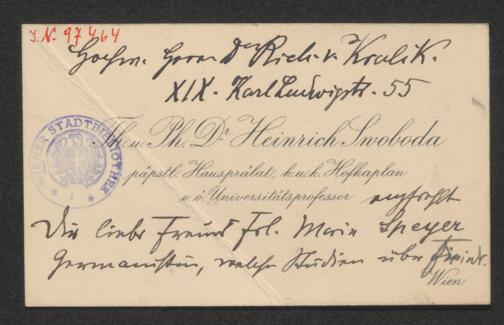 J.N. 97464
Hochw. Herrn Dr Rich. v. Kralik.
XIX. Karl Ludwigstr. 55
WIENER STADTBIBLIOTHEK
Th. u. Ph. Dr. Heinrich Swoboda
päpstl. Hausprälat, k.u.k. Hofkaplan
o.ö. Universitätsprofessor empfiehlt
Frl. Marie Speyer
Germanistin, welche Studien über
Wien